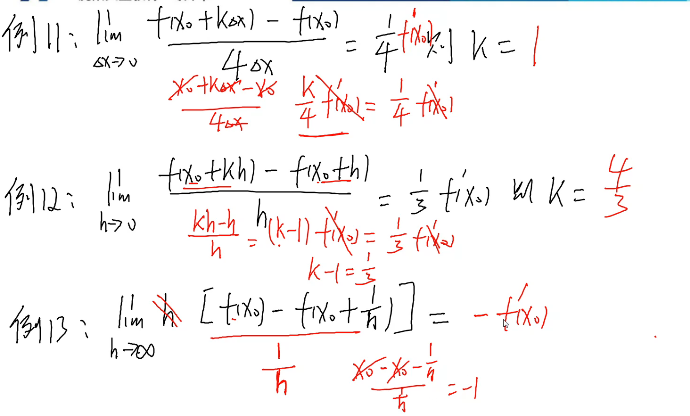 例11: lim Δx→0 f(x₀+kΔx) - f(x₀) / 4Δx = 1/4 f'(x₀) 则 k = 1
x₀+kΔx-x₀ / 4Δx  k/4 f'(x₀) = 1/4 f'(x₀)
例12: lim h→0 f(x₀+kh) - f(x₀+h) / h = 1/3 f'(x₀) 则 k = 4/3
kh-h / h = (k-1) f'(x₀) = 1/3 f'(x₀)
k-1 = 1/3
例13: lim h→∞ h [f(x₀) - f(x₀+1/h)] = -f'(x₀)
1/h  x₀-x₀-1/h / 1/h = -1